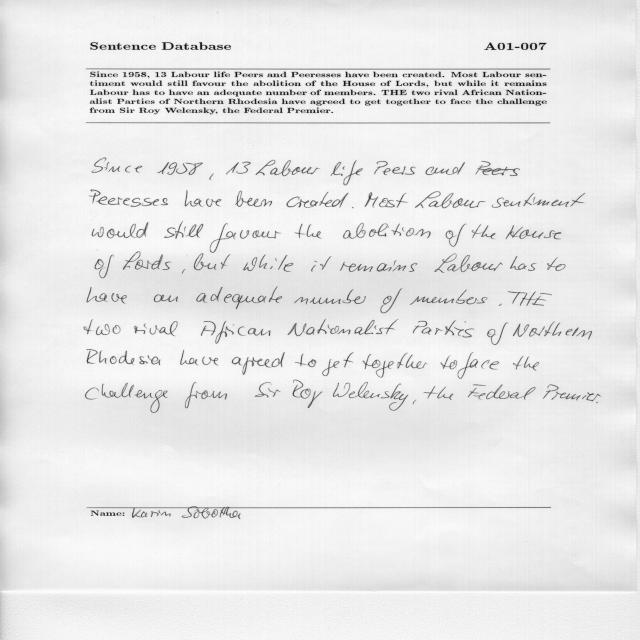 Sentence Database A01-007
Since 1958, 13 Labour life Peers and Peeresses have been created. Most Labour sen-
timent would still favour the abolition of the House of Lords, but while it remains
Labour has to have an adequate number of members. THE two rival African Nation-
alist Parties of Northern Rhodesia have agreed to get together to face the challenge
from Sir Roy Welensky, the Federal Premier.
Since 1958, 13 Labour life Peers and Peers
Peeresses have been created. Most Labour sentiment
would still favour the abolition of the House
of Lords, but while it remains Labour has to
have an adequate number of members. THE
two rival African Nationalist Parties of Northern
Rhodesia have agreed to get together to face the
challenge from Sir Roy Welensky, the Federal Premier.
Name: Karin